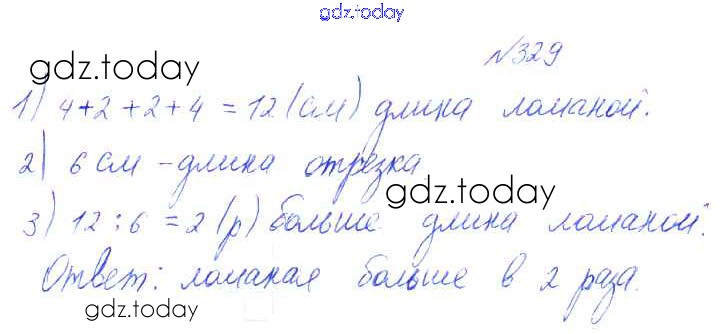 gdz.today
№329
gdz.today
1) 4+2+2+4=12(см) длина ломаной.
2) 6 см - длина отрезка
gdz.today
3) 12:6=2(р) больше длина ломаной.
Ответ: ломаная больше в 2 раза.
gdz.today